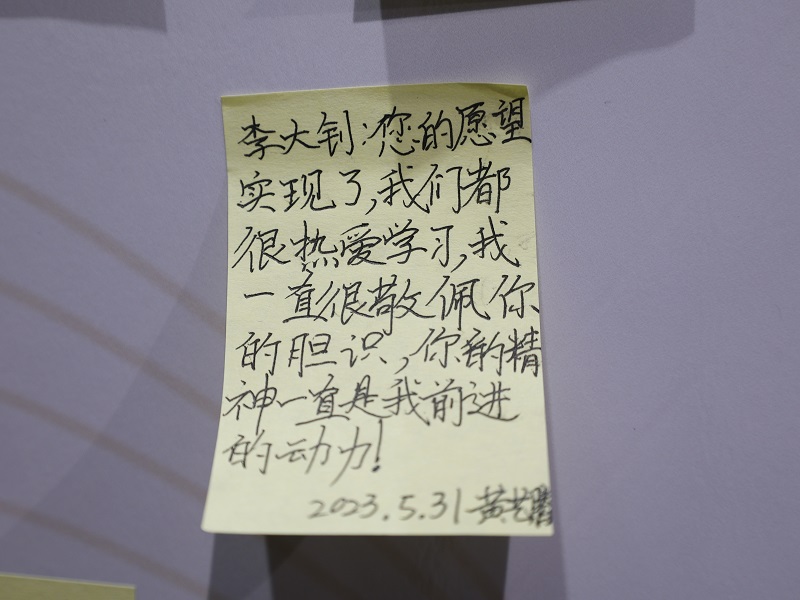 李大钊:您的愿望
实现了,我们都
很热爱学习,我
一直很敬佩你
的胆识,你的精
神一直是我前进
的动力!
2023.5.31 黄艺